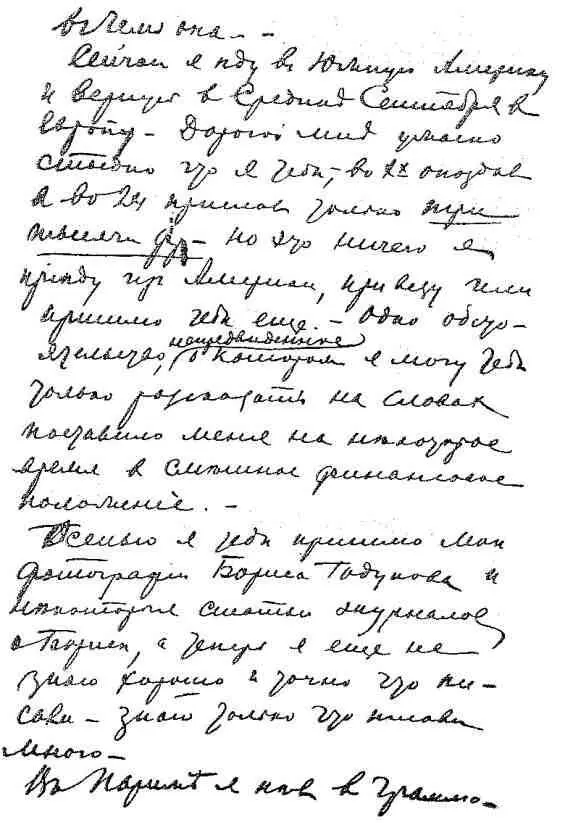 въ чемъ она. - -
Сейчас я иду въ Южную Америку
и вернусь в Средней Сентября в
Европу - Дорогой мой ужасно
стыдно что я тебѣ, во 1х опоздав
а во 2х прислав только три
тысячи фр - но это ничего я
приеду из Америки, привезу или
пришлю тебѣ еще. - Одно обсто-
ятельство, непредвиденное о котором я могу тебѣ
только рассказать на словах
поставило меня на некоторое
время в смешное финансовое
положенiе. -
Осенью я тебѣ пришлю мои
фотографiи Бориса Годунова и
некоторые статьи журналов
о Борисе, а теперь я еще не
знаю хорошо и точно что пи-
сали - знаю только что писали
много -
Въ Парижѣ я пѣл в Граммо-